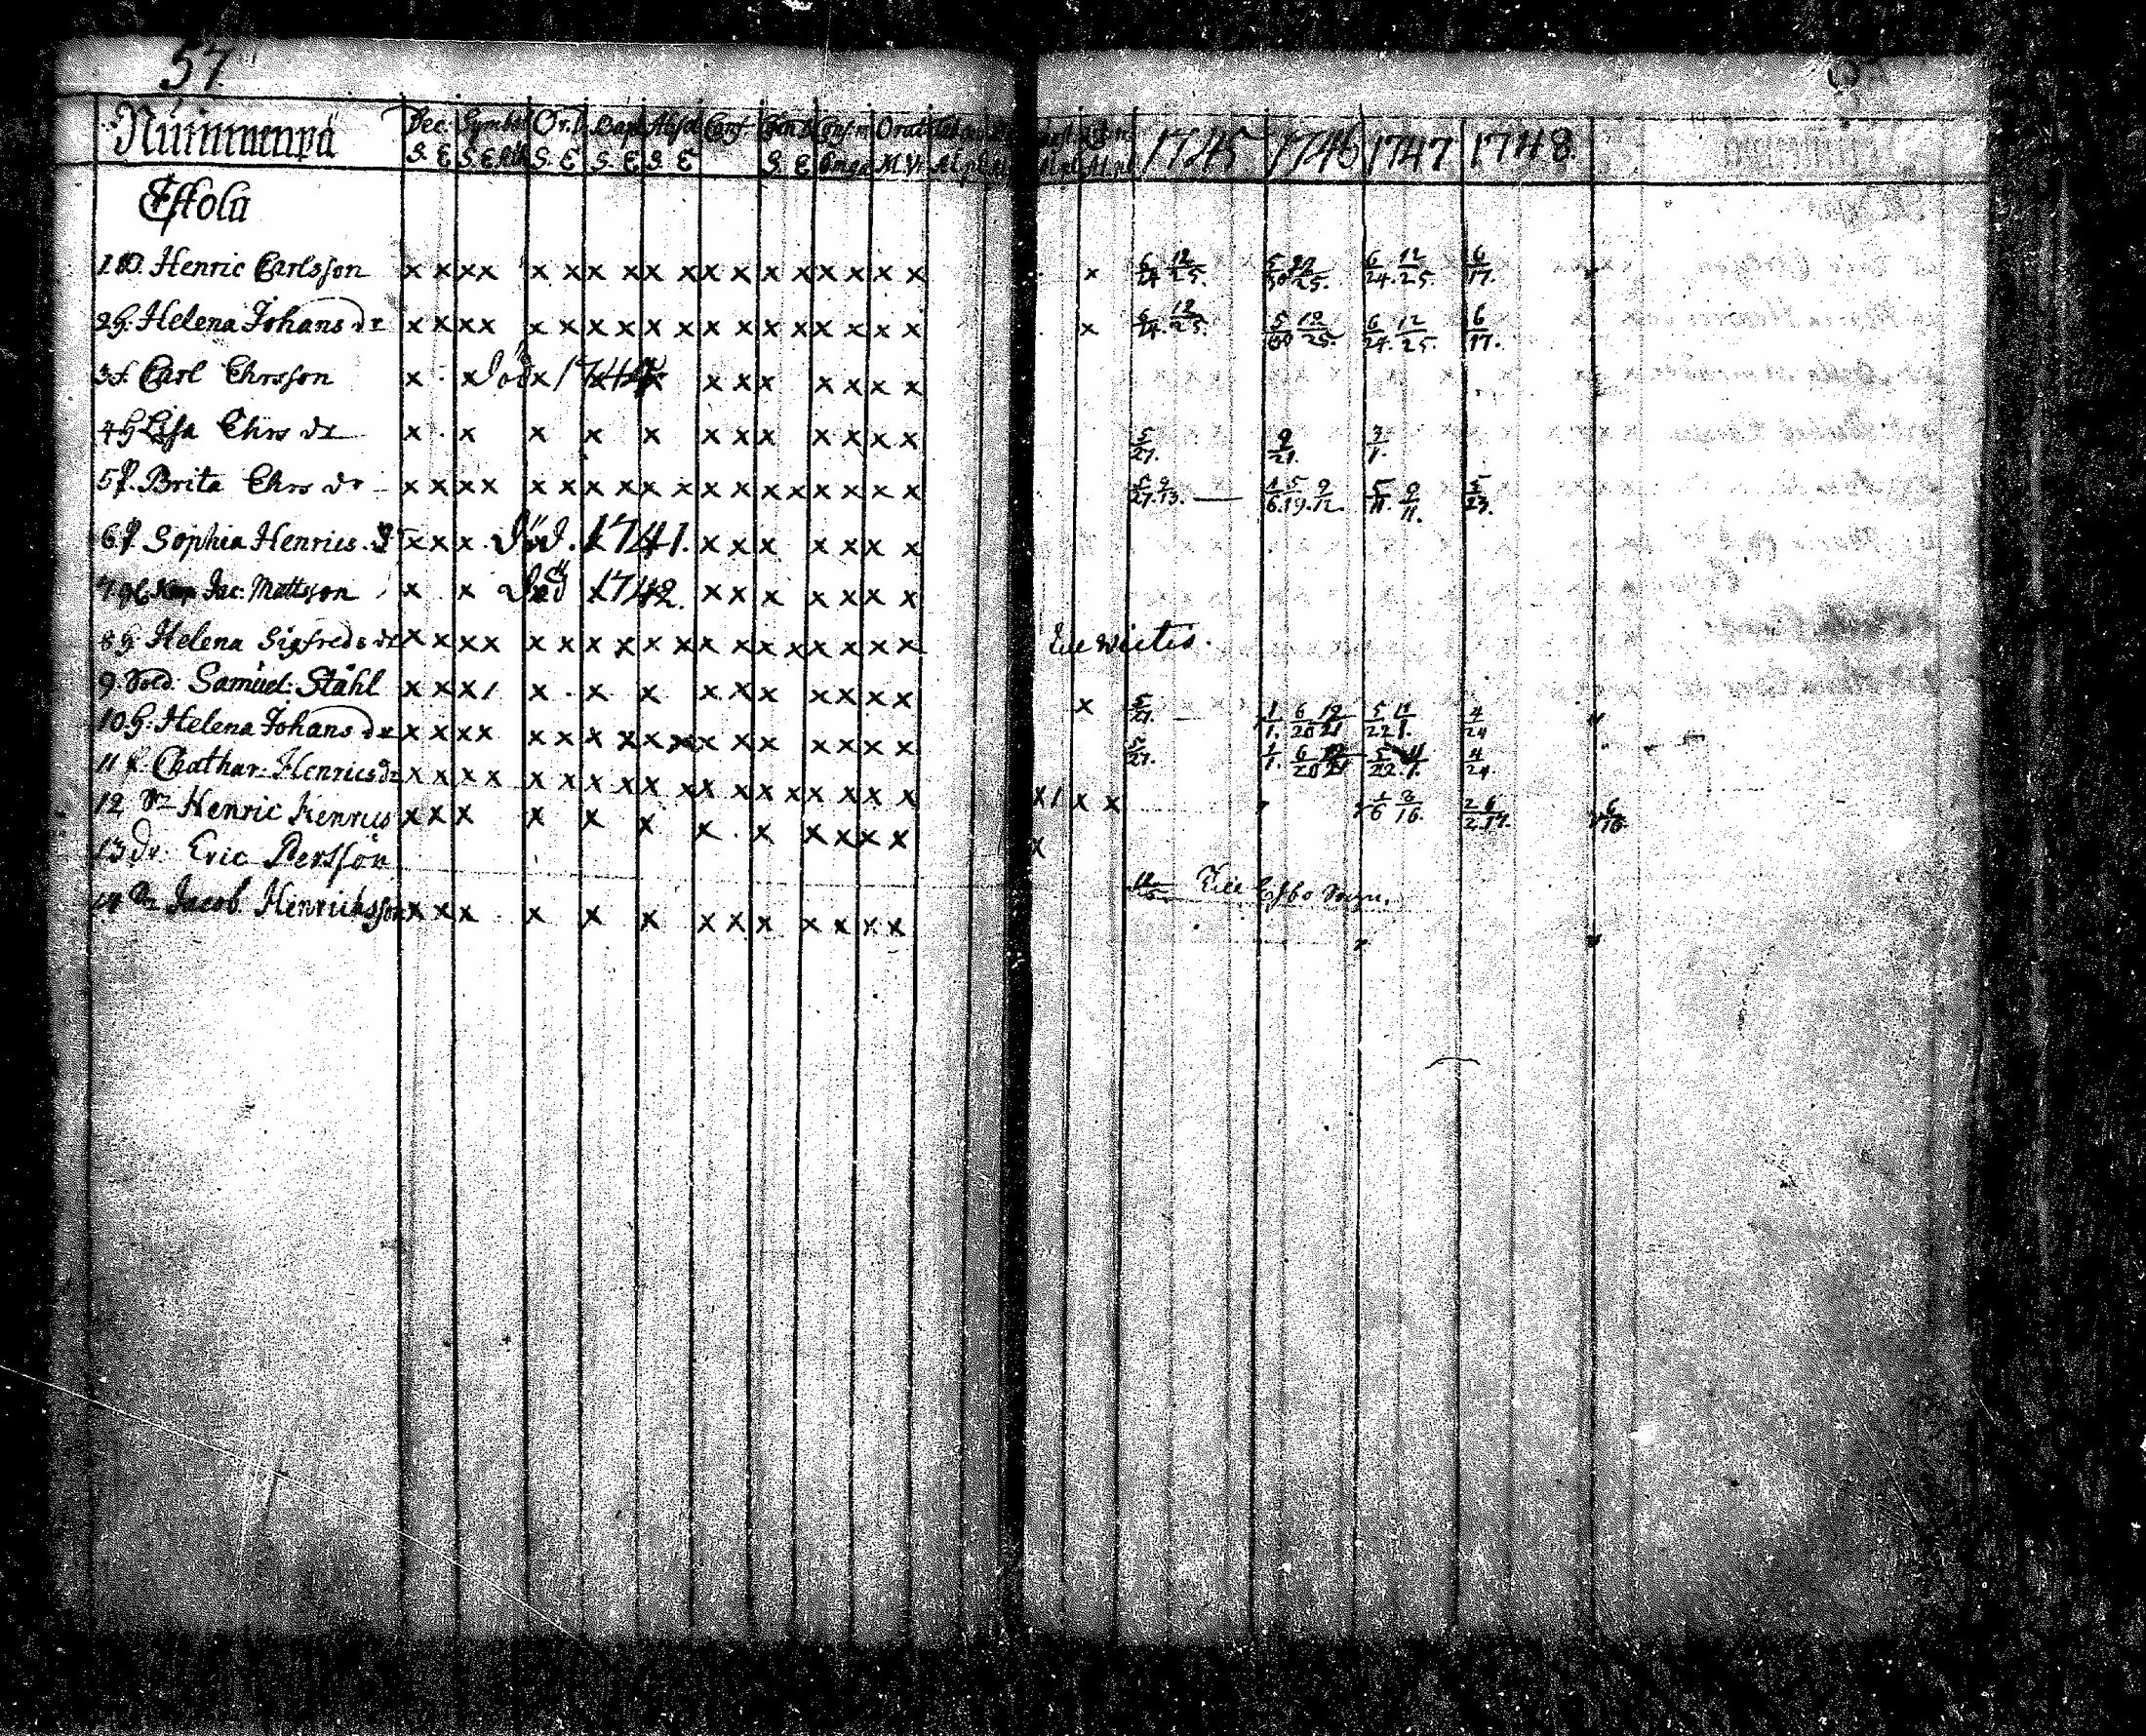 57.
Nummenpä Dec. Symbol Or. D. Bap. Absol. Conf. Cœn D. Conf. m Orat. 1745 1746 1747 1748.
S. E S. E S. E S. E S. E S. E M. V.
Estola
1 D. Henric Carlsson x x x x x x x x x x x x x x x x x x x 6/24 12/25. 5/30 12/25. 6/24. 12/25. 6/17.
2 H. Helena Johans dr x x x x x x x x x x x x x x x x x x x 6/24. 12/25. 5/30 12/25. 6/24. 12/25. 6/17.
3 S. Carl Ehrsson x x Död x 1744 x x x x x x x
4 H Lisa Ehrs dr x x x x x x x x x x x x 5/27. 9/21. 3/1.
5 P. Brita Ehrs dr x x x x x x x x x x x x x x x x x x 5/27. 9/13. 1/6. 5/19. 9/12. 5/11. 9/11. 5/23.
6 P. Sophia Henrics. D x x x. Död. 1741. x x x x x x x
7 Jac: Mattsson x x Död 1742. x x x x x x x
8 H Helena Sigfreds dr x x x x x x x x x x x x x x x x x x
9. Sold. Samuel. Ståhl x x x / x x x x x x x x x x x 5/27. 1/1. 6/20 12/21 5/22 11/1. 4/24
10 H. Helena Johans dr x x x x x x x x x x x x x x x x x 5/27. 1/1. 6/20 12/21 5/22. 11/1. 4/24
11 P. Chathar. Henricsdr x x x x x x x x x x x x x x x x x x x 1 x x 1/6 8/16. 2/2 6/17. 6/16.
12 Dr Henric Henrics x x x x x x x x x x x x x
13 dr. Eric Persson
14 Dr Jacob. Henricksson x x x x x x x x x x x x x Till Esbo Sogn.